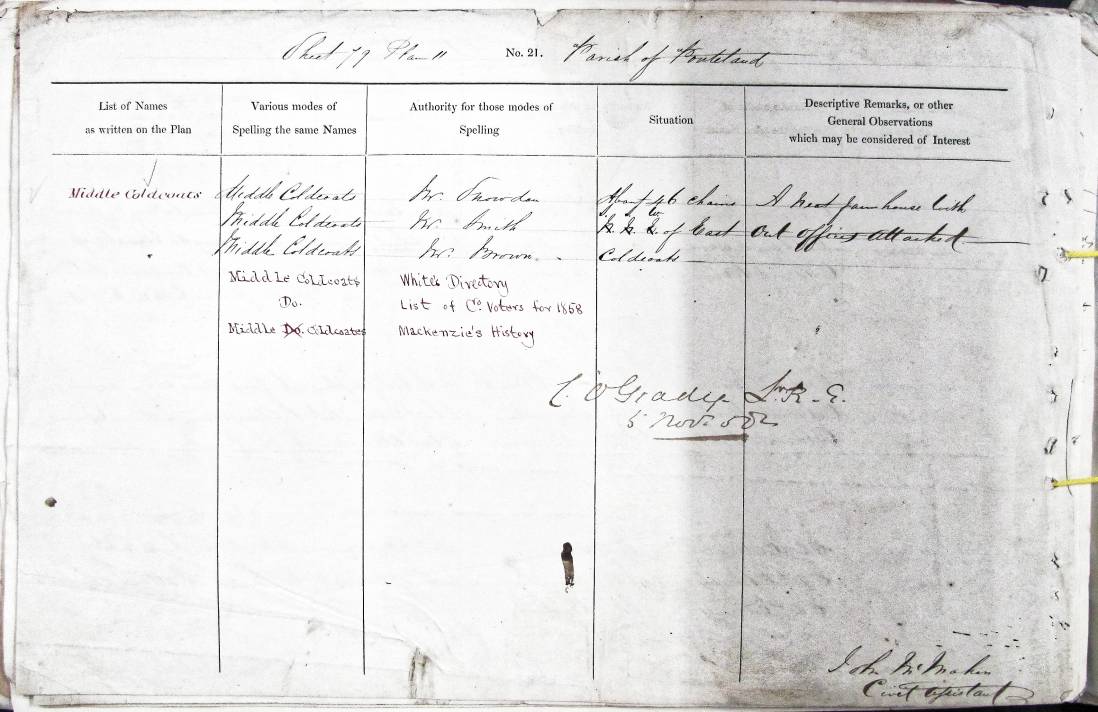 Sheet 79 Plan 11 No. 21. Parish of Ponteland
List of Names
as written on the Plan
Various modes of
Spelling the same Names
Authority for those modes of
Spelling
Situation
Descriptive Remarks, or other
General Observations
which may be considered of Interest
Middle Coldcoats
Middle Coldcoats
Middle Coldcoats
Middle Coldcoats
Middle Coldcoats
Do.
Middle Do. Coldcoates
Mr. Snowdon
Mr. Smith
Mr. Brown
White's Directory
List of Co. Voters for 1858
Mackenzie's History
About 46 chains
of East
Coldcoats
A Neat farm house With
Out Offices attached
C. O'Grady Lt. R.E.
5 Nov.
John McMahon
Civil Assistant